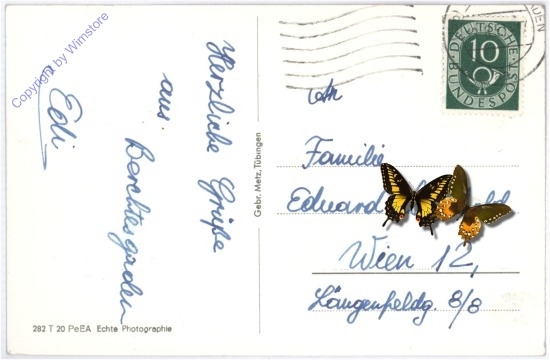 Herzliche Grüße
aus
Berchtesgaden
Edi
Copyright by Wimstore
282 T 20 PeEA Echte Photographie
Gebr. Metz, Tübingen
DEUTSCHE
10
BUNDESPOST
Familie
Eduard
Wien 12,
Längenfeldg. 8/8